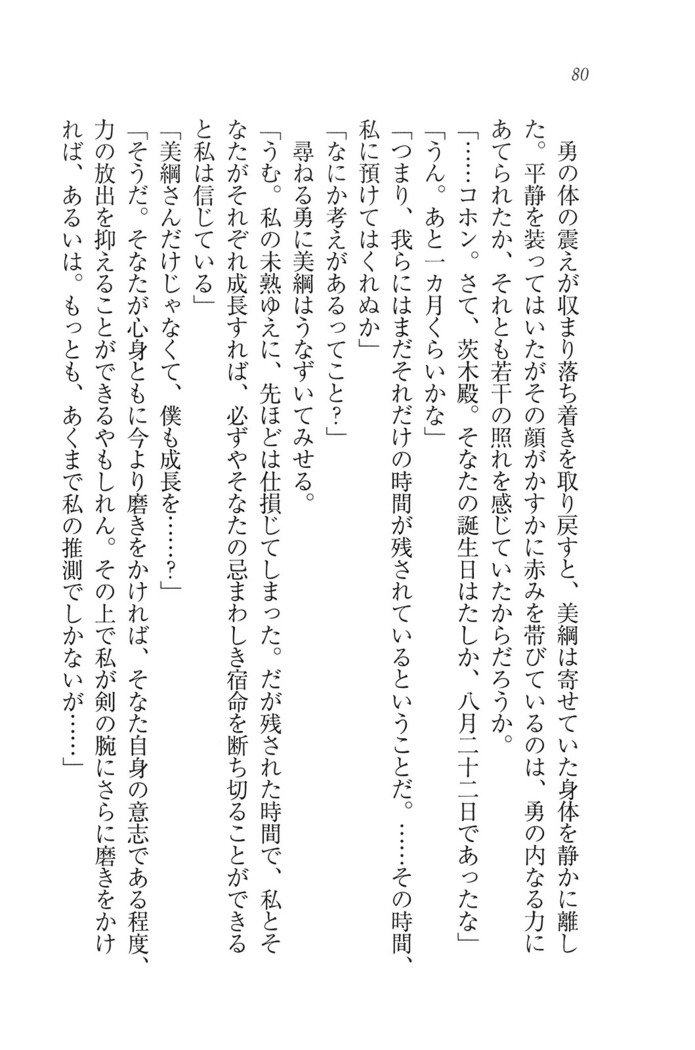 80
勇の体の震えが収まり落ち着きを取り戻すと、美綱は寄せていた身体を静かに離し
た。平静を装ってはいたがその顔がかすかに赤みを帯びているのは、勇の内なる力に
あてられたか、それとも若干の照れを感じていたからだろうか。
「……コホン。さて、茨木殿。そなたの誕生日はたしか、八月二十二日であったな」
「うん。あと一カ月くらいかな」
「つまり、我らにはまだそれだけの時間が残されているということだ。……その時間、
私に預けてはくれぬか」
「なにか考えがあるってこと？」
尋ねる勇に美綱はうなずいてみせる。
「うむ。私の未熟ゆえに、先ほどは仕損じてしまった。だが残された時間で、私とそ
なたがそれぞれ成長すれば、必ずやそなたの忌まわしき宿命を断ち切ることができる
と私は信じている」
「美綱さんだけじゃなくて、僕も成長を……？」
「そうだ。そなたが心身ともに今より磨きをかければ、そなた自身の意志である程度、
力の放出を抑えることができるやもしれん。その上で私が剣の腕にさらに磨きをかけ
れば、あるいは。もっとも、あくまで私の推測でしかないが……」